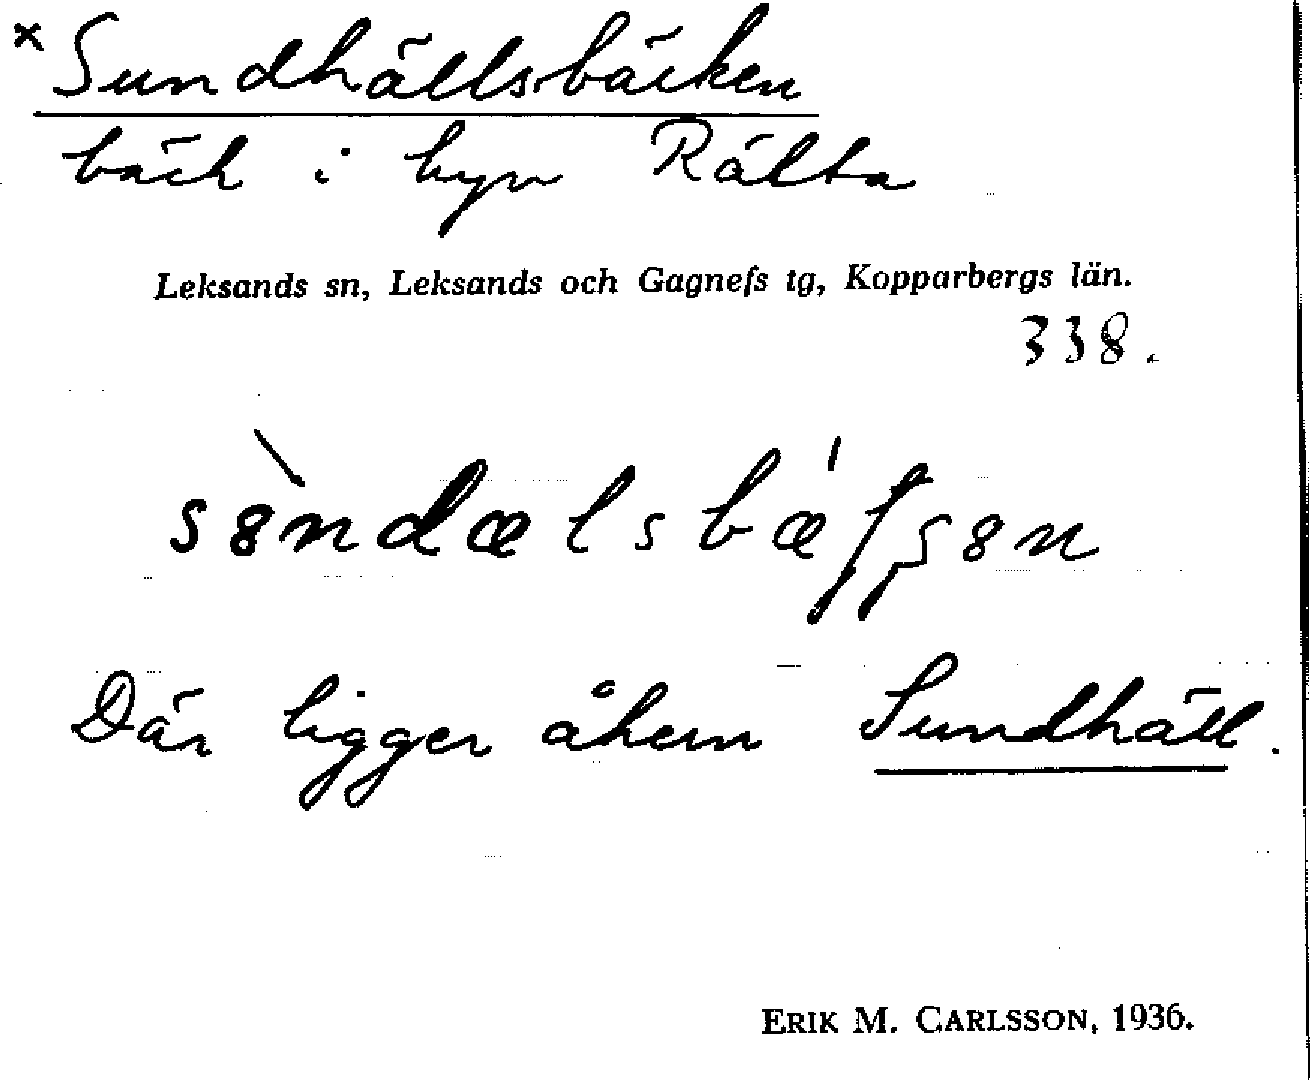 × Sundhällsbäcken
bäck i byn Rälta
Leksands sn, Leksands och Gagnefs tg, Kopparbergs län.
338.
Där ligger åkern Sundhäll.
ERIK M. CARLSSON, 1936.